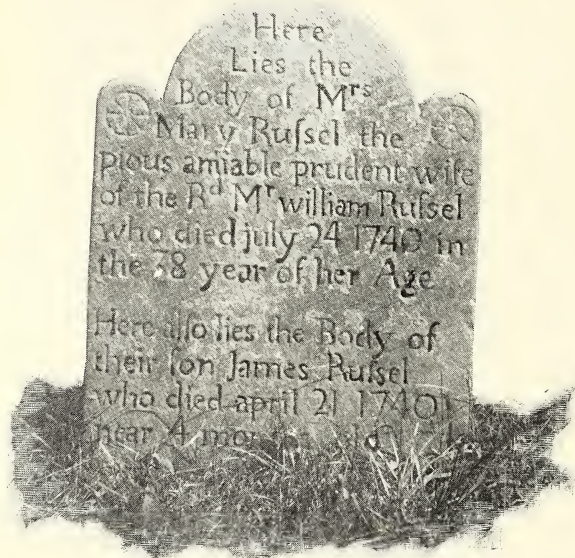 Here
Lies the
Body of Mrs
Mary Ruſsel the
pious amiable prudent wife
of the Rd Mr william Ruſsel
who died july 24 1740 in
the 38 year of her Age
Here alſo lies the Body of
their ſon James Ruſsel
who died april 21 1740
near 4